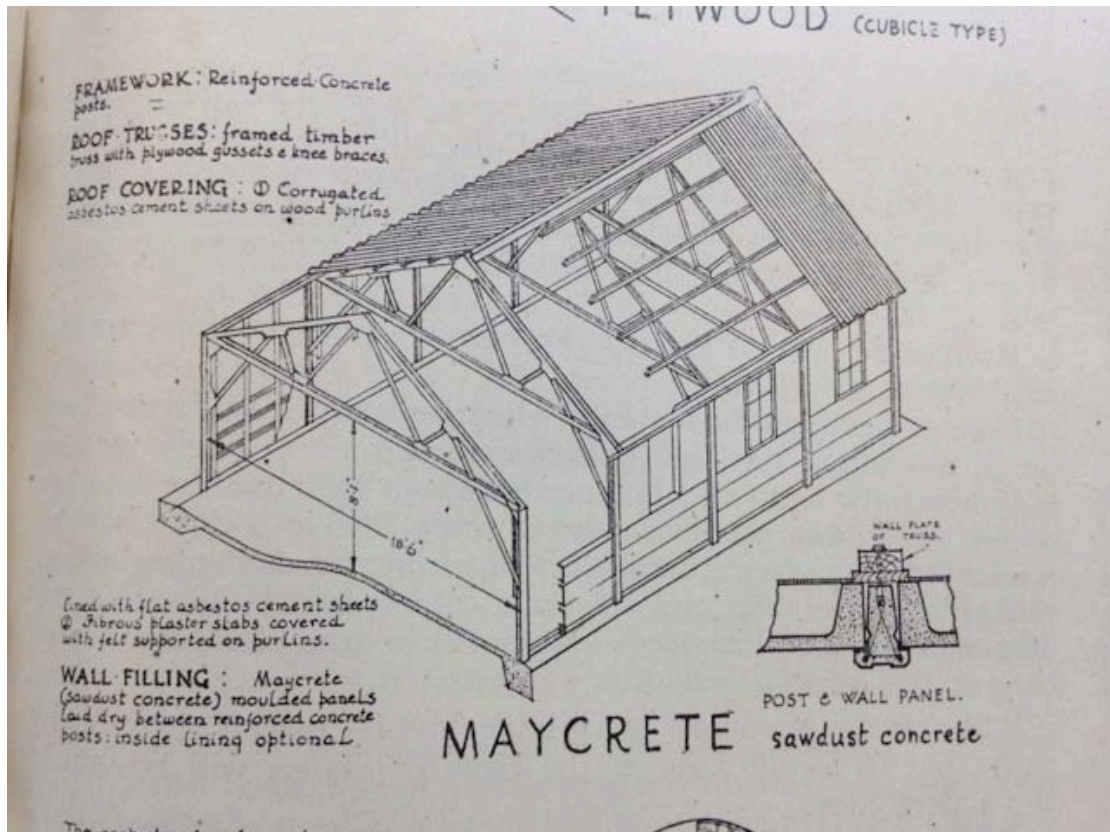 PLYWOOD (CUBICLE TYPE)
FRAMEWORK: Reinforced Concrete
posts.
ROOF TRUSSES: framed timber
truss with plywood gussets & knee braces.
ROOF COVERING: ① Corrugated
asbestos cement sheets on wood purlins
8'2"
18'6"
WALL PLATE
OF TRUSS.
lined with flat asbestos cement sheets
② Fibrous plaster slabs covered
with felt supported on purlins.
WALL FILLING: Maycrete
(sawdust concrete) moulded panels
laid dry between reinforced concrete
posts: inside lining optional
POST & WALL PANEL.
MAYCRETE sawdust concrete
The